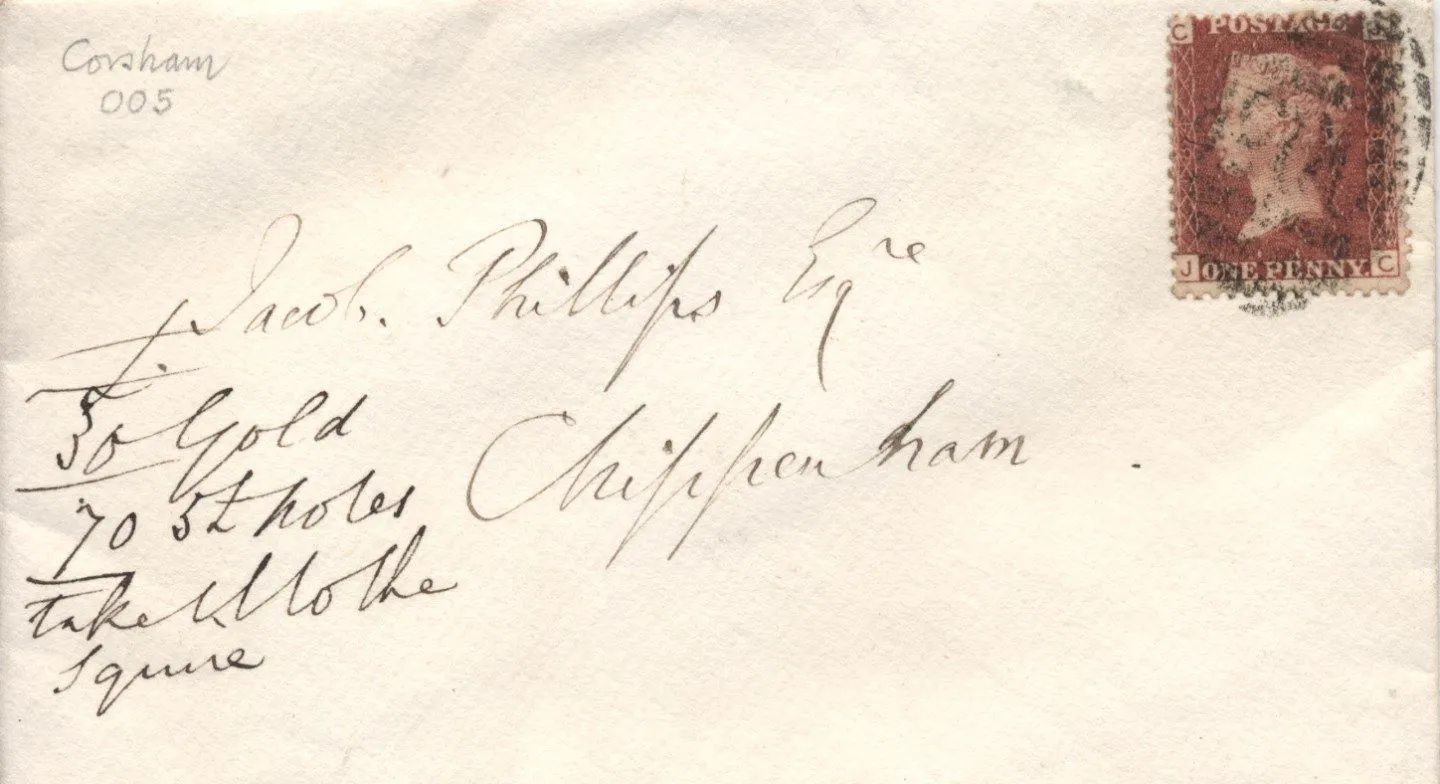 Corsham
005
C POSTAGE J
J ONE PENNY C
Jacob. Phillips Esqre
Chippenham
50 Gold
70 5£ notes
take to the
Squire